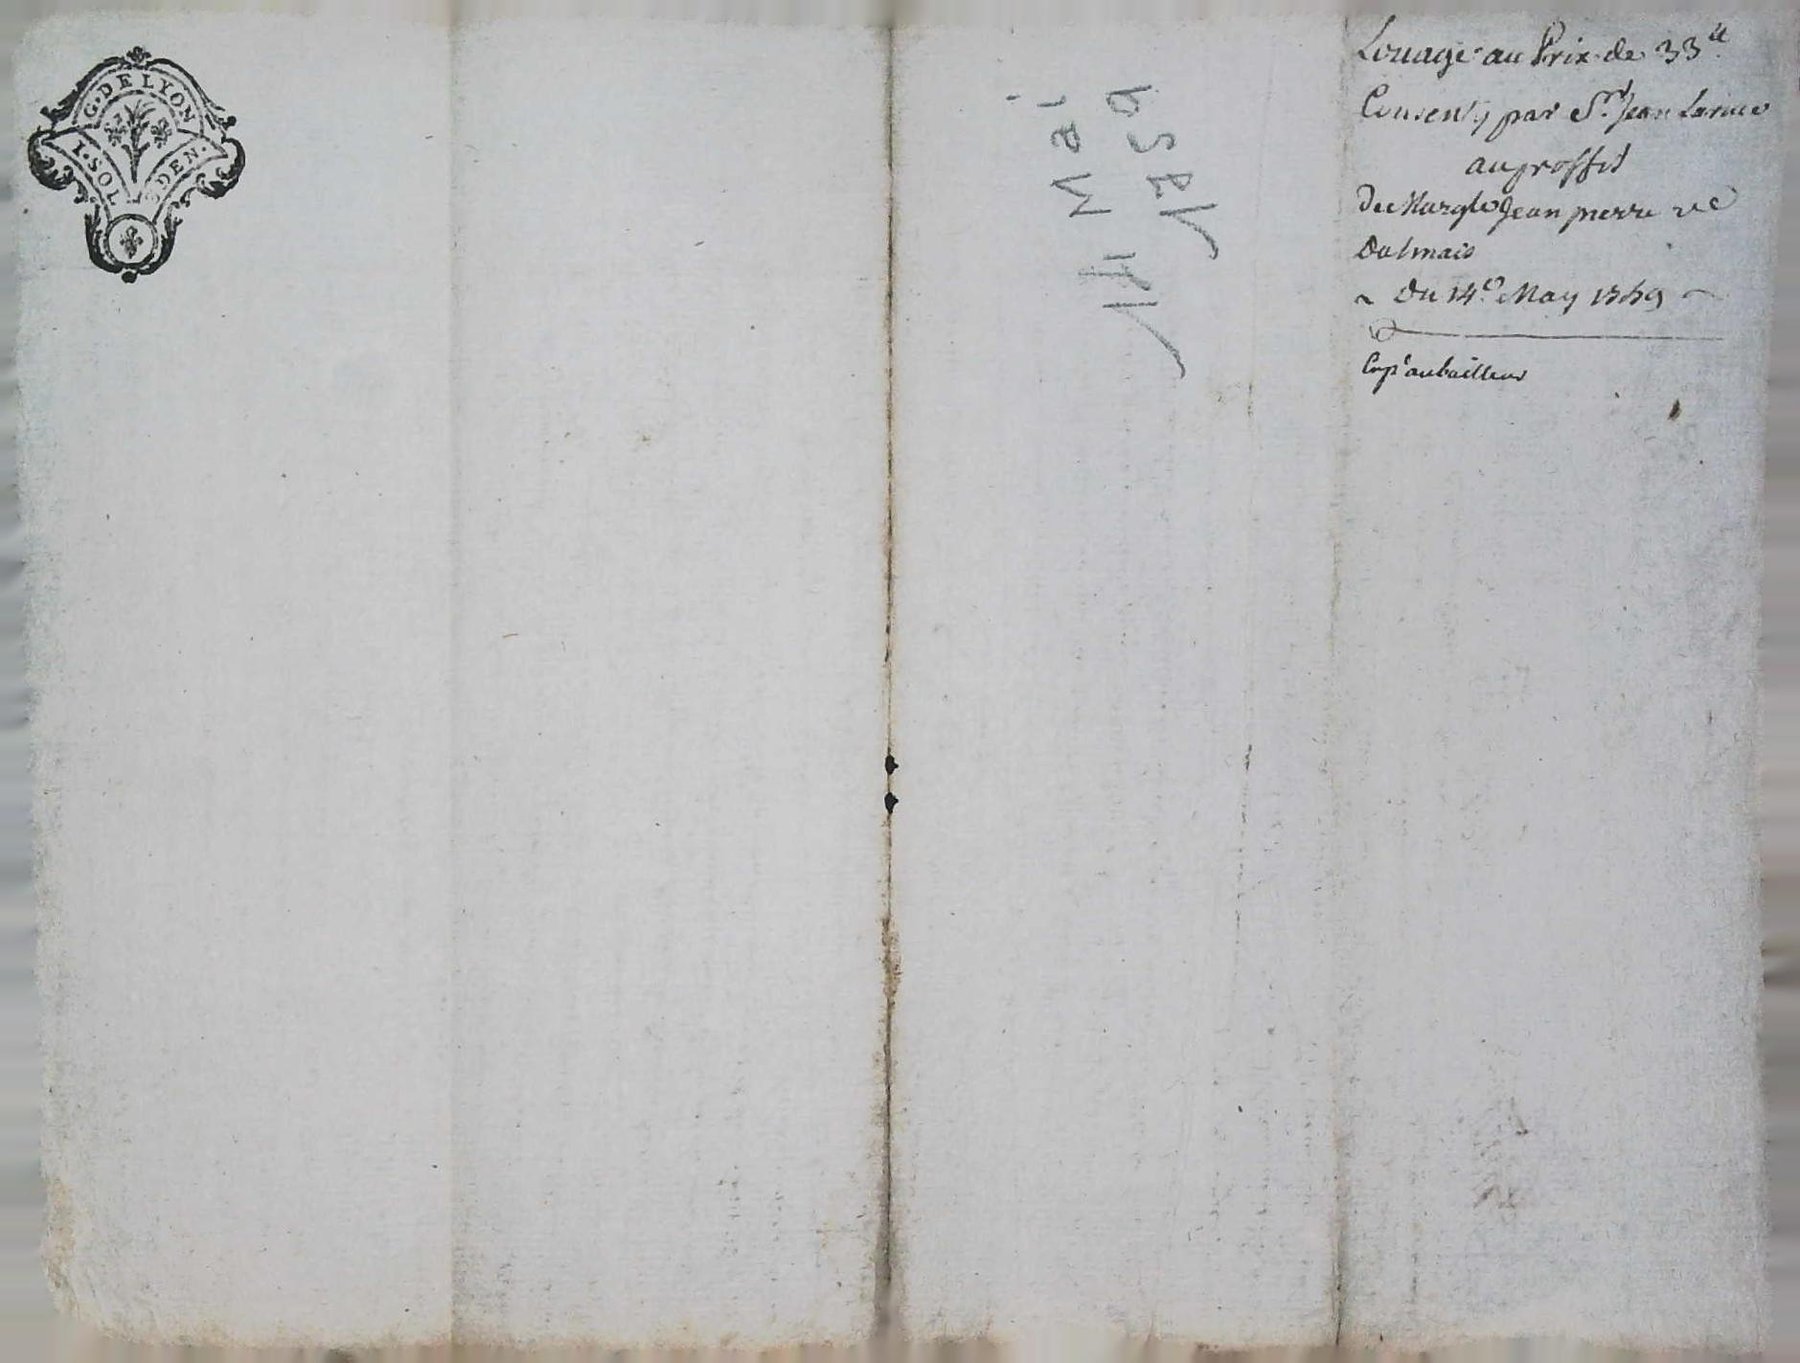 G. DE LYON
I. SOL DEN.
14 Mai
1759
Louage au Prix de 33ᵗᵗ
Consenty par Sʳ. Jean Larue
au proffit
De Margte Jean pierre vᵉ
Dalmais
~ Du 14ᵉ May 1759 ~
Exp' au bailleur